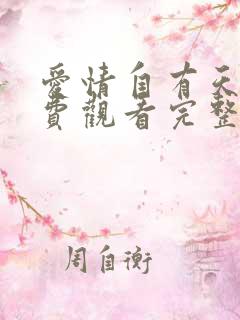 愛情自有天
費觀看完整
周自衡